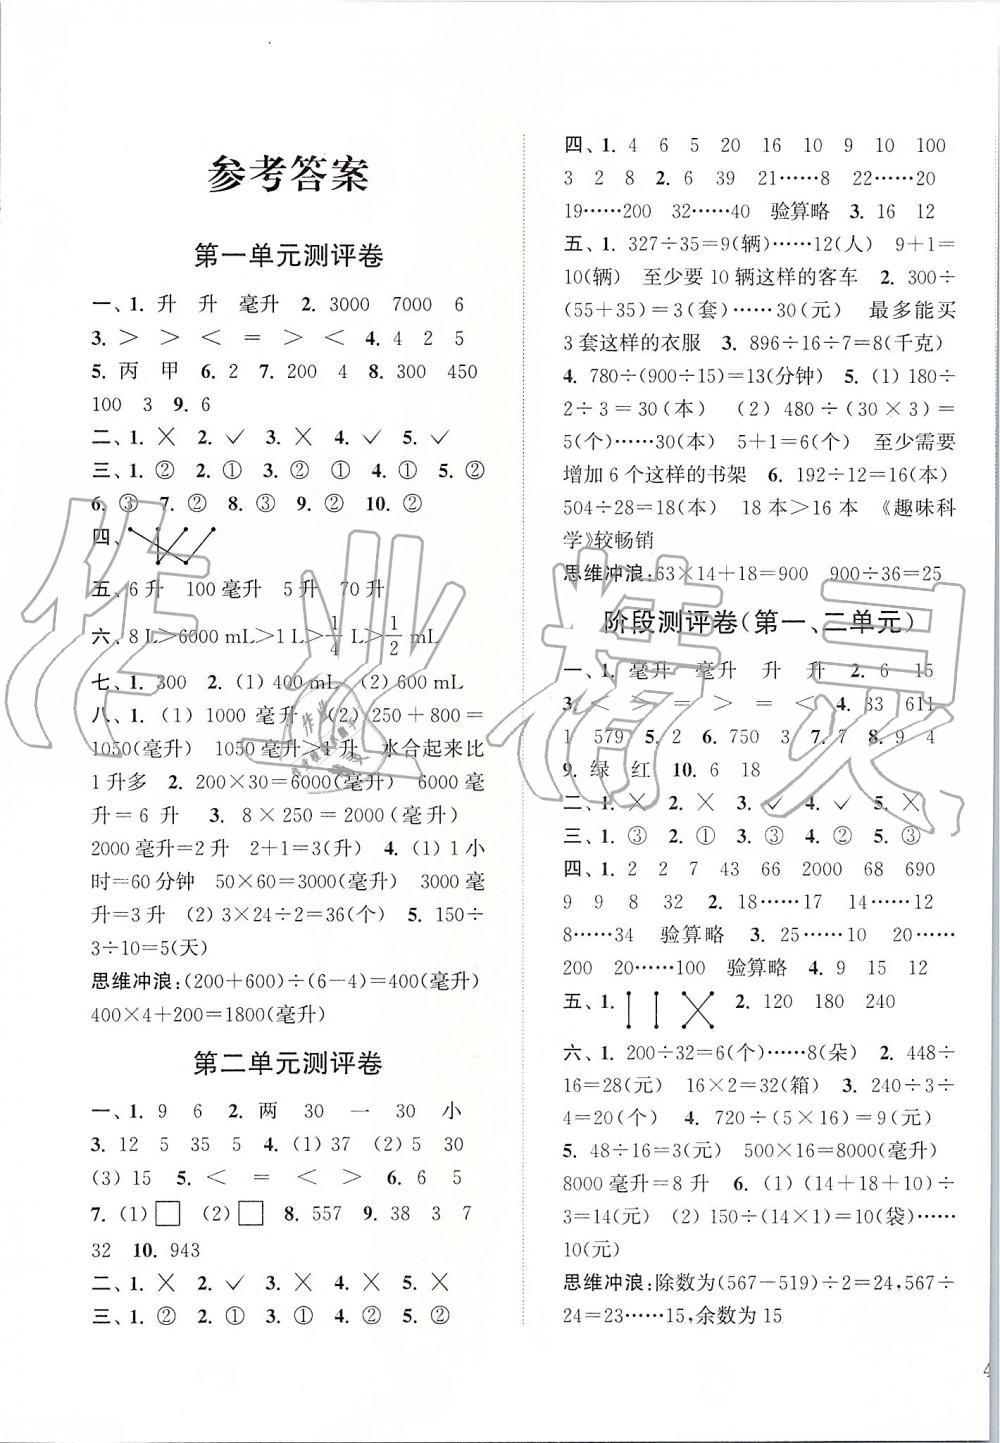 参考答案
第一单元测评卷
一、1. 升 升 毫升 2. 3000 7000 6
3. ＞ ＞ ＜ ＝ ＞ ＜ 4. 4 2 5
5. 丙 甲 6. 2 7. 200 4 8. 300 450
100 3 9. 6
二、1. ✕ 2. ✓ 3. ✕ 4. ✓ 5. ✓
三、1. ② 2. ① 3. ② ① 4. ① 5. ②
6. ③ 7. ② 8. ③ 9. ② 10. ②
四、
五、6 升 100 毫升 5 升 70 升
六、8 L＞6000 mL＞1 L＞1/4 L＞1/2 mL
七、1. 300 2. (1) 400 mL (2) 600 mL
八、1. (1) 1000 毫升 (2) 250＋800＝
1050(毫升) 1050 毫升＞1 升 水合起来比
1 升多 2. 200×30＝6000(毫升) 6000
毫升＝6 升 3. 8×250＝2000(毫升)
2000 毫升＝2 升 2＋1＝3(升) 4. (1) 1 小
时＝60 分钟 50×60＝3000(毫升) 3000 毫
升＝3 升 (2) 3×24÷2＝36(个) 5. 150÷
3÷10＝5(天)
思维冲浪:(200＋600)÷(6－4)＝400(毫升)
400×4＋200＝1800(毫升)
第二单元测评卷
一、1. 9 6 2. 两 30 一 30 小
3. 12 5 35 5 4. (1) 37 (2) 5 30
(3) 15 5. ＜ ＝ ＜ ＞ 6. 6 5
7. (1)□ (2)□ 8. 557 9. 38 3 7
32 10. 943
二、1. ✕ 2. ✓ 3. ✕ 4. ✕ 5. ✕
三、1. ② 2. ① 3. ① 4. ② 5. ②
四、1. 4 6 5 20 16 10 9 10 100
3 2 8 2. 6 39 21……8 22……20
19……200 32……40 验算略 3. 16 12
五、1. 327÷35＝9(辆)……12(人) 9＋1＝
10(辆) 至少要 10 辆这样的客车 2. 300÷
(55＋35)＝3(套)……30(元) 最多能买
3 套这样的衣服 3. 896÷16÷7＝8(千克)
4. 780÷(900÷15)＝13(分钟) 5. (1) 180÷
2÷3＝30(本) (2) 480÷(30×3)＝
5(个)……30(本) 5＋1＝6(个) 至少需要
增加 6 个这样的书架 6. 192÷12＝16(本)
504÷28＝18(本) 18 本＞16 本 《趣味科
学》较畅销
思维冲浪:63×14＋18＝900 900÷36＝25
阶段测评卷(第一、二单元)
一、1. 毫升 毫升 升 升 2. 6 15
3. ＜ ＝ ＞ ＝ ＜ 4. 33 611
1 579 5. 2 6. 750 3 7. 7 8. 9 4
9. 绿 红 10. 6 18
二、1. ✕ 2. ✕ 3. ✓ 4. ✓ 5. ✕
三、1. ③ 2. ① 3. ③ 4. ② 5. ③
四、1. 2 2 7 43 66 2000 68 690
9 9 8 32 2. 18……17 14……12
8……34 验算略 3. 25……10 20……
200 20……100 验算略 4. 9 15 12
五、1. 2. 120 180 240
六、1. 200÷32＝6(个)……8(朵) 2. 448÷
16＝28(元) 16×2＝32(箱) 3. 240÷3÷
4＝20(个) 4. 720÷(5×16)＝9(元)
5. 48÷16＝3(元) 500×16＝8000(毫升)
8000 毫升＝8 升 6. (1) (14＋18＋10)÷
3＝14(元) (2) 150÷(14×1)＝10(袋)……
10(元)
思维冲浪:除数为(567－519)÷2＝24,567÷
24＝23……15,余数为 15
作业精灵